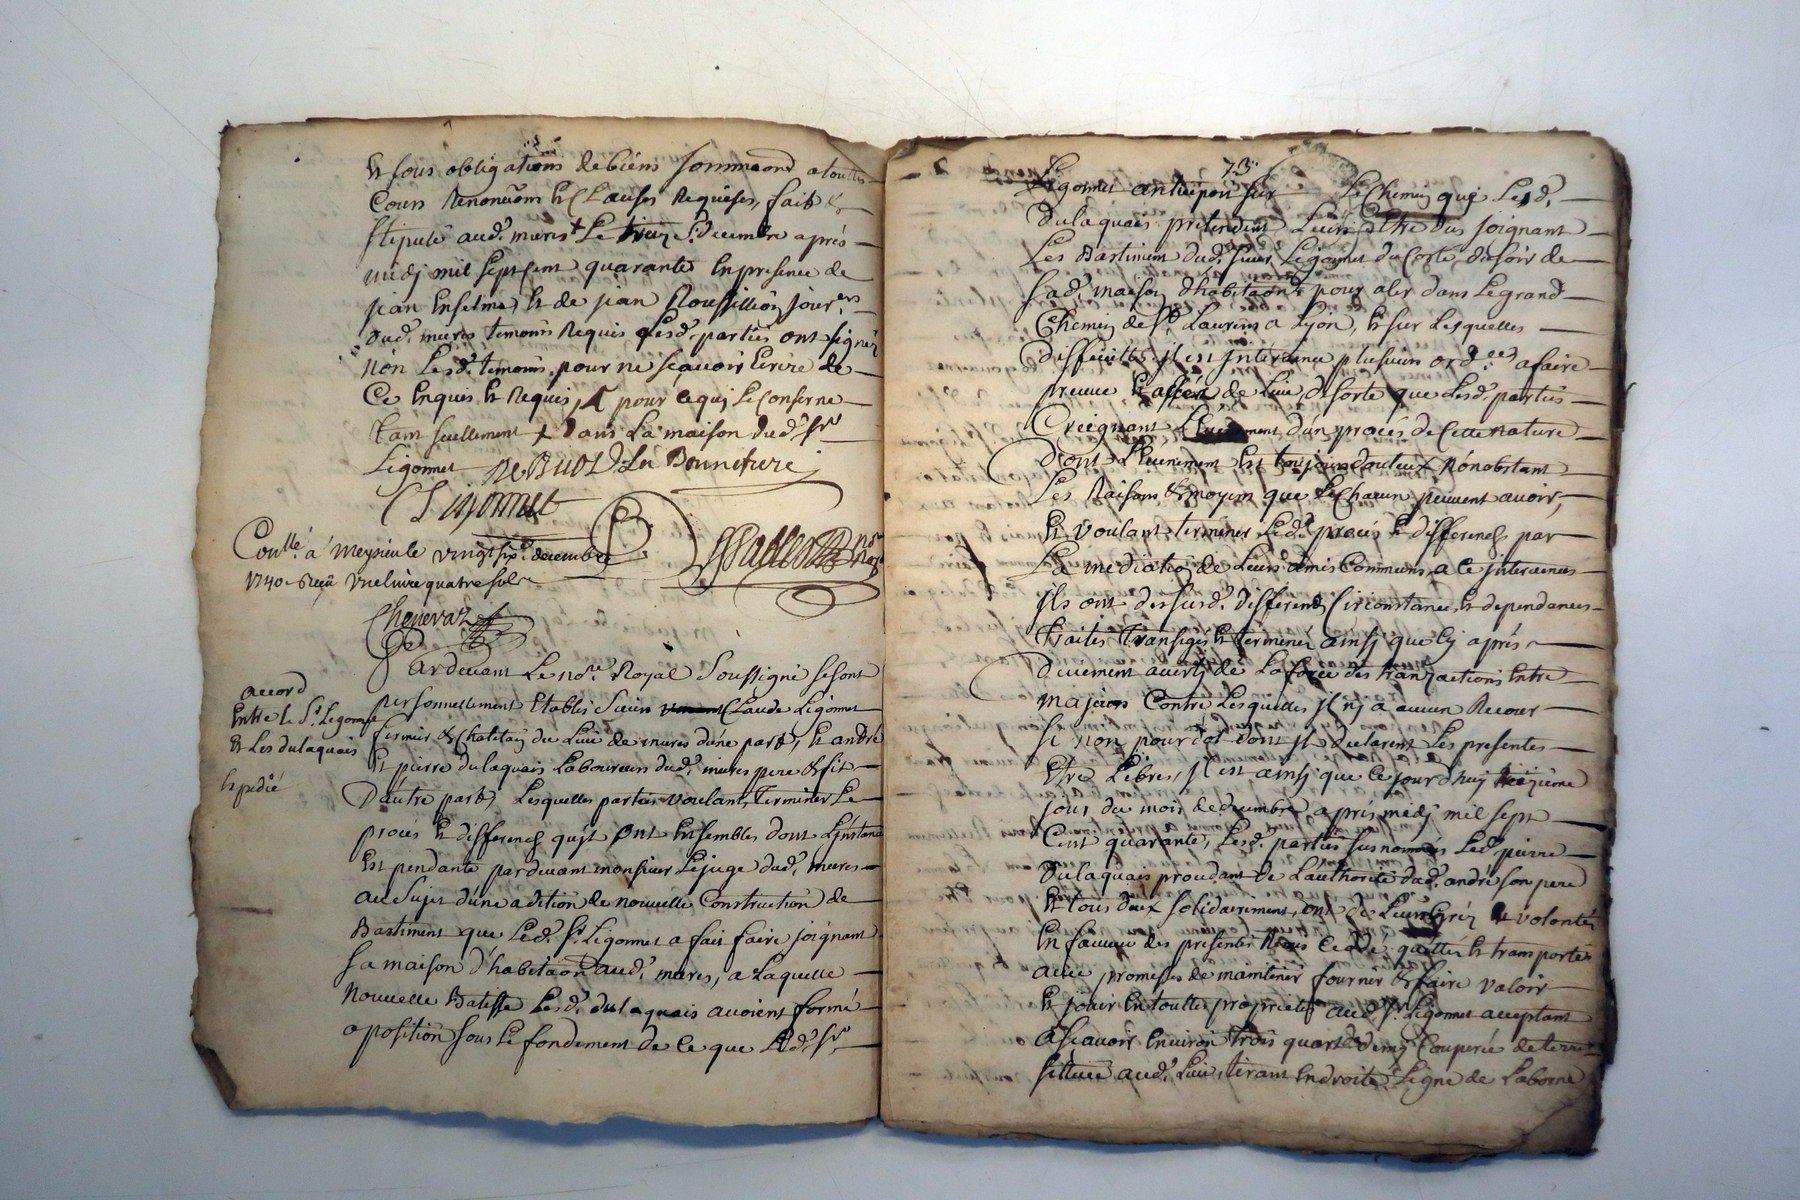 Et sous obligations de biens sommaond a touttes
Cours Renonuons Et Clauses Requises, fait &
stipulé aud. mures Le treize decembre aprés
midj mil sept Cent quarante En presence de
jean Enselme Et de jean Roussillion jour.ers
dud. mures temoins Requis Lesd. parties ont signéz
non Lesd. temoins pour ne sçavoir Ecrire de
Ce Enquis Et Requis pour ce quj Le Conserne
tant seullement dans La maison dud. Sr
Ligonnet
Ligonnet
Conllé a Meysieule vingt six decembre
1740 Reçu vne livre quatre sols
Chenevaz
Pardeuant Le no.re Royal Soussigné se sont
accord
Entre le S. Ligonnet
Et Les dulaquais
Expedié
personnellement Etablis Sieur Claude Ligonnet
fermier & Chatelaij du Lieu de mures d'une part, Et andré
Et pierre dulaquais Laboureurs dud. mures pere & fils
D'autre part, Lesquelles parties voulant Terminer Le
procés Et differends qu'jls ont Ensembles dont L'jnstance
Est pendante pardeuant monsieur Le juge dud. mures
au Sujet d'une adition de nouvelle Construction de
Bastiment que Led. Sr. Ligonnet a fait faire joignant
sa maison d'habitaon aud. mures, a Laquelle
Nouvelle Batisse Lesd. dulaquais avoient formé
oposition sous Le fondement de ce que Led. Sr
73
Ligonnet antiecpoit sur Le Chemin que Lesd.
Dulaquais pretendent Leurs Etre dus joignant
Les Bastiment dud. sieur Ligonnet du Corté du soir de
sad. maison d'habitaon pour aler dans Le grand
Chemin de St. Laurens a Lyon, Et sur Lesquelles
difficultés jl est jntervenu plusieurs ord.ces a faire
preuve Et de Lieu, de sorte que Lesd. parties
Creignant d'un procés de Cette Nature
Dont L'Evenement Est toujours douteux Nonobstant
Les Raisons & moyens que Le Chacun peuvent avoir,
Et voulant terminer Led. procés Et differends par
La mediatioj de Leurs amis Communs a ce jntervenus
jls ont desusd. differends Circonstances Et dependances
traités Transigés Et terminé ainsj que Cj aprés
Duement avertj de La force des tranzactions Entre
majeurs Contre Lesquelles jl n'j a aucun Recour
si non pour dol dont jls declarent Les presentes
Etre Libres, jl est ainsj que ce jourd'huij treizieme
jour du mois de decembre aprés midj mil sept
Cent quarante, Lesd. parties susnommés Led. pierre
Dulaquais procedant de L'authorité dud. andré son pere
Et tous deux solidairement, ont de Leurs Gréz Et volonté
En faveur des presentes Remis Cedde quitte Et transporte
avec promesses de maintenir fournir & faire valoir
Et jouir En toutte proprieté aud. Sr. Ligonnet acceptant
a sçavoir Environ trois quart d'emij Couperée de terre
sittuée aud. Lieu, tirant En droite Ligne de La borne